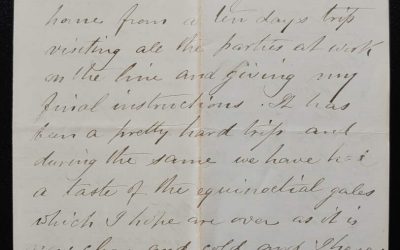 home from a ten days trip
visiting all the parties at work
on the line and giving my
final instructions. It has
been a pretty hard trip and
during the same we have had
a taste of the equinoctial gales
which I hope are over as it is
now clear and cold and I have